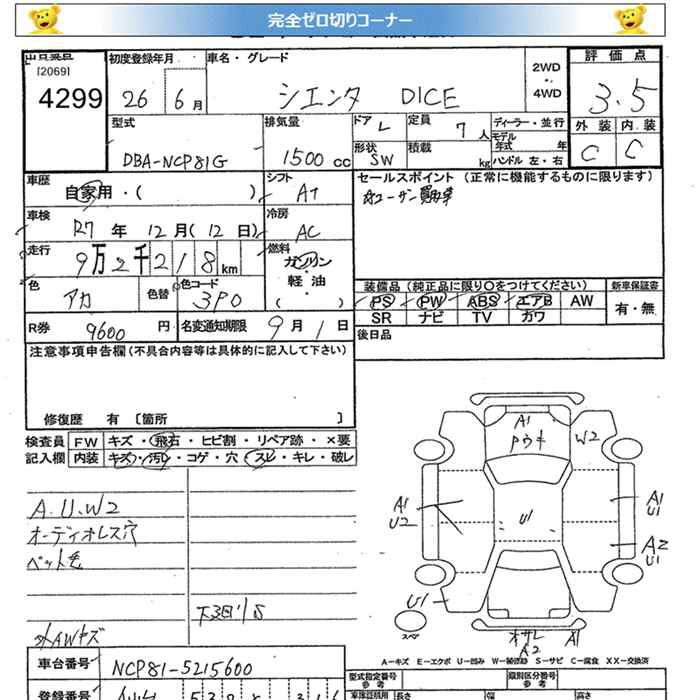 完全ゼロ切りコーナー
[2069]
4299
初度登録年月
26 6月
車名・グレード
シエンタ DICE
2WD
・
4WD
評価点
3.5
外装 内装
C C
型式
DBA-NCP81G
排気量
1500 cc
ドア
形状
SW
定員
7人
積載
kg
ディーラー・並行
モデル年式 年
ハンドル 左・右
車歴
自家用・( )
シフト
AT
車検
R7年12月(12日)
冷房
AC
走行
9万2千218km
燃料
ガソリン・軽油・( )
色
アカ
色替
色コード
3P0
R券
9600円
名変通知期限
9月1日
セールスポイント (正常に機能するものに限ります)
装備品 (純正品に限り○をつけてください)
新車保証書
PS PW ABS エアB AW
SR ナビ TV カワ
有・無
後日品
注意事項申告欄(不具合内容等は具体的に記入して下さい)
修復歴 有 〔箇所 〕
検査員記入欄
FW キズ・飛石・ヒビ割・リペア跡・×要
内装 キズ・汚レ・コゲ・穴・スレ・キレ・破レ
A.U.W2
オーディオレス穴
ペット毛
AWキズ
A1
W2
A1
U2
U1
A1
U1
A2
U1
U1
スペア
A2
A1
A-キズ E-エクボ U-凹み W-補修跡 S-サビ C-腐食 XX-交換済
車台番号
NCP81-5215600
登録番号
型式指定番号
参考
類別区分番号
参考
長さ
幅
高さ